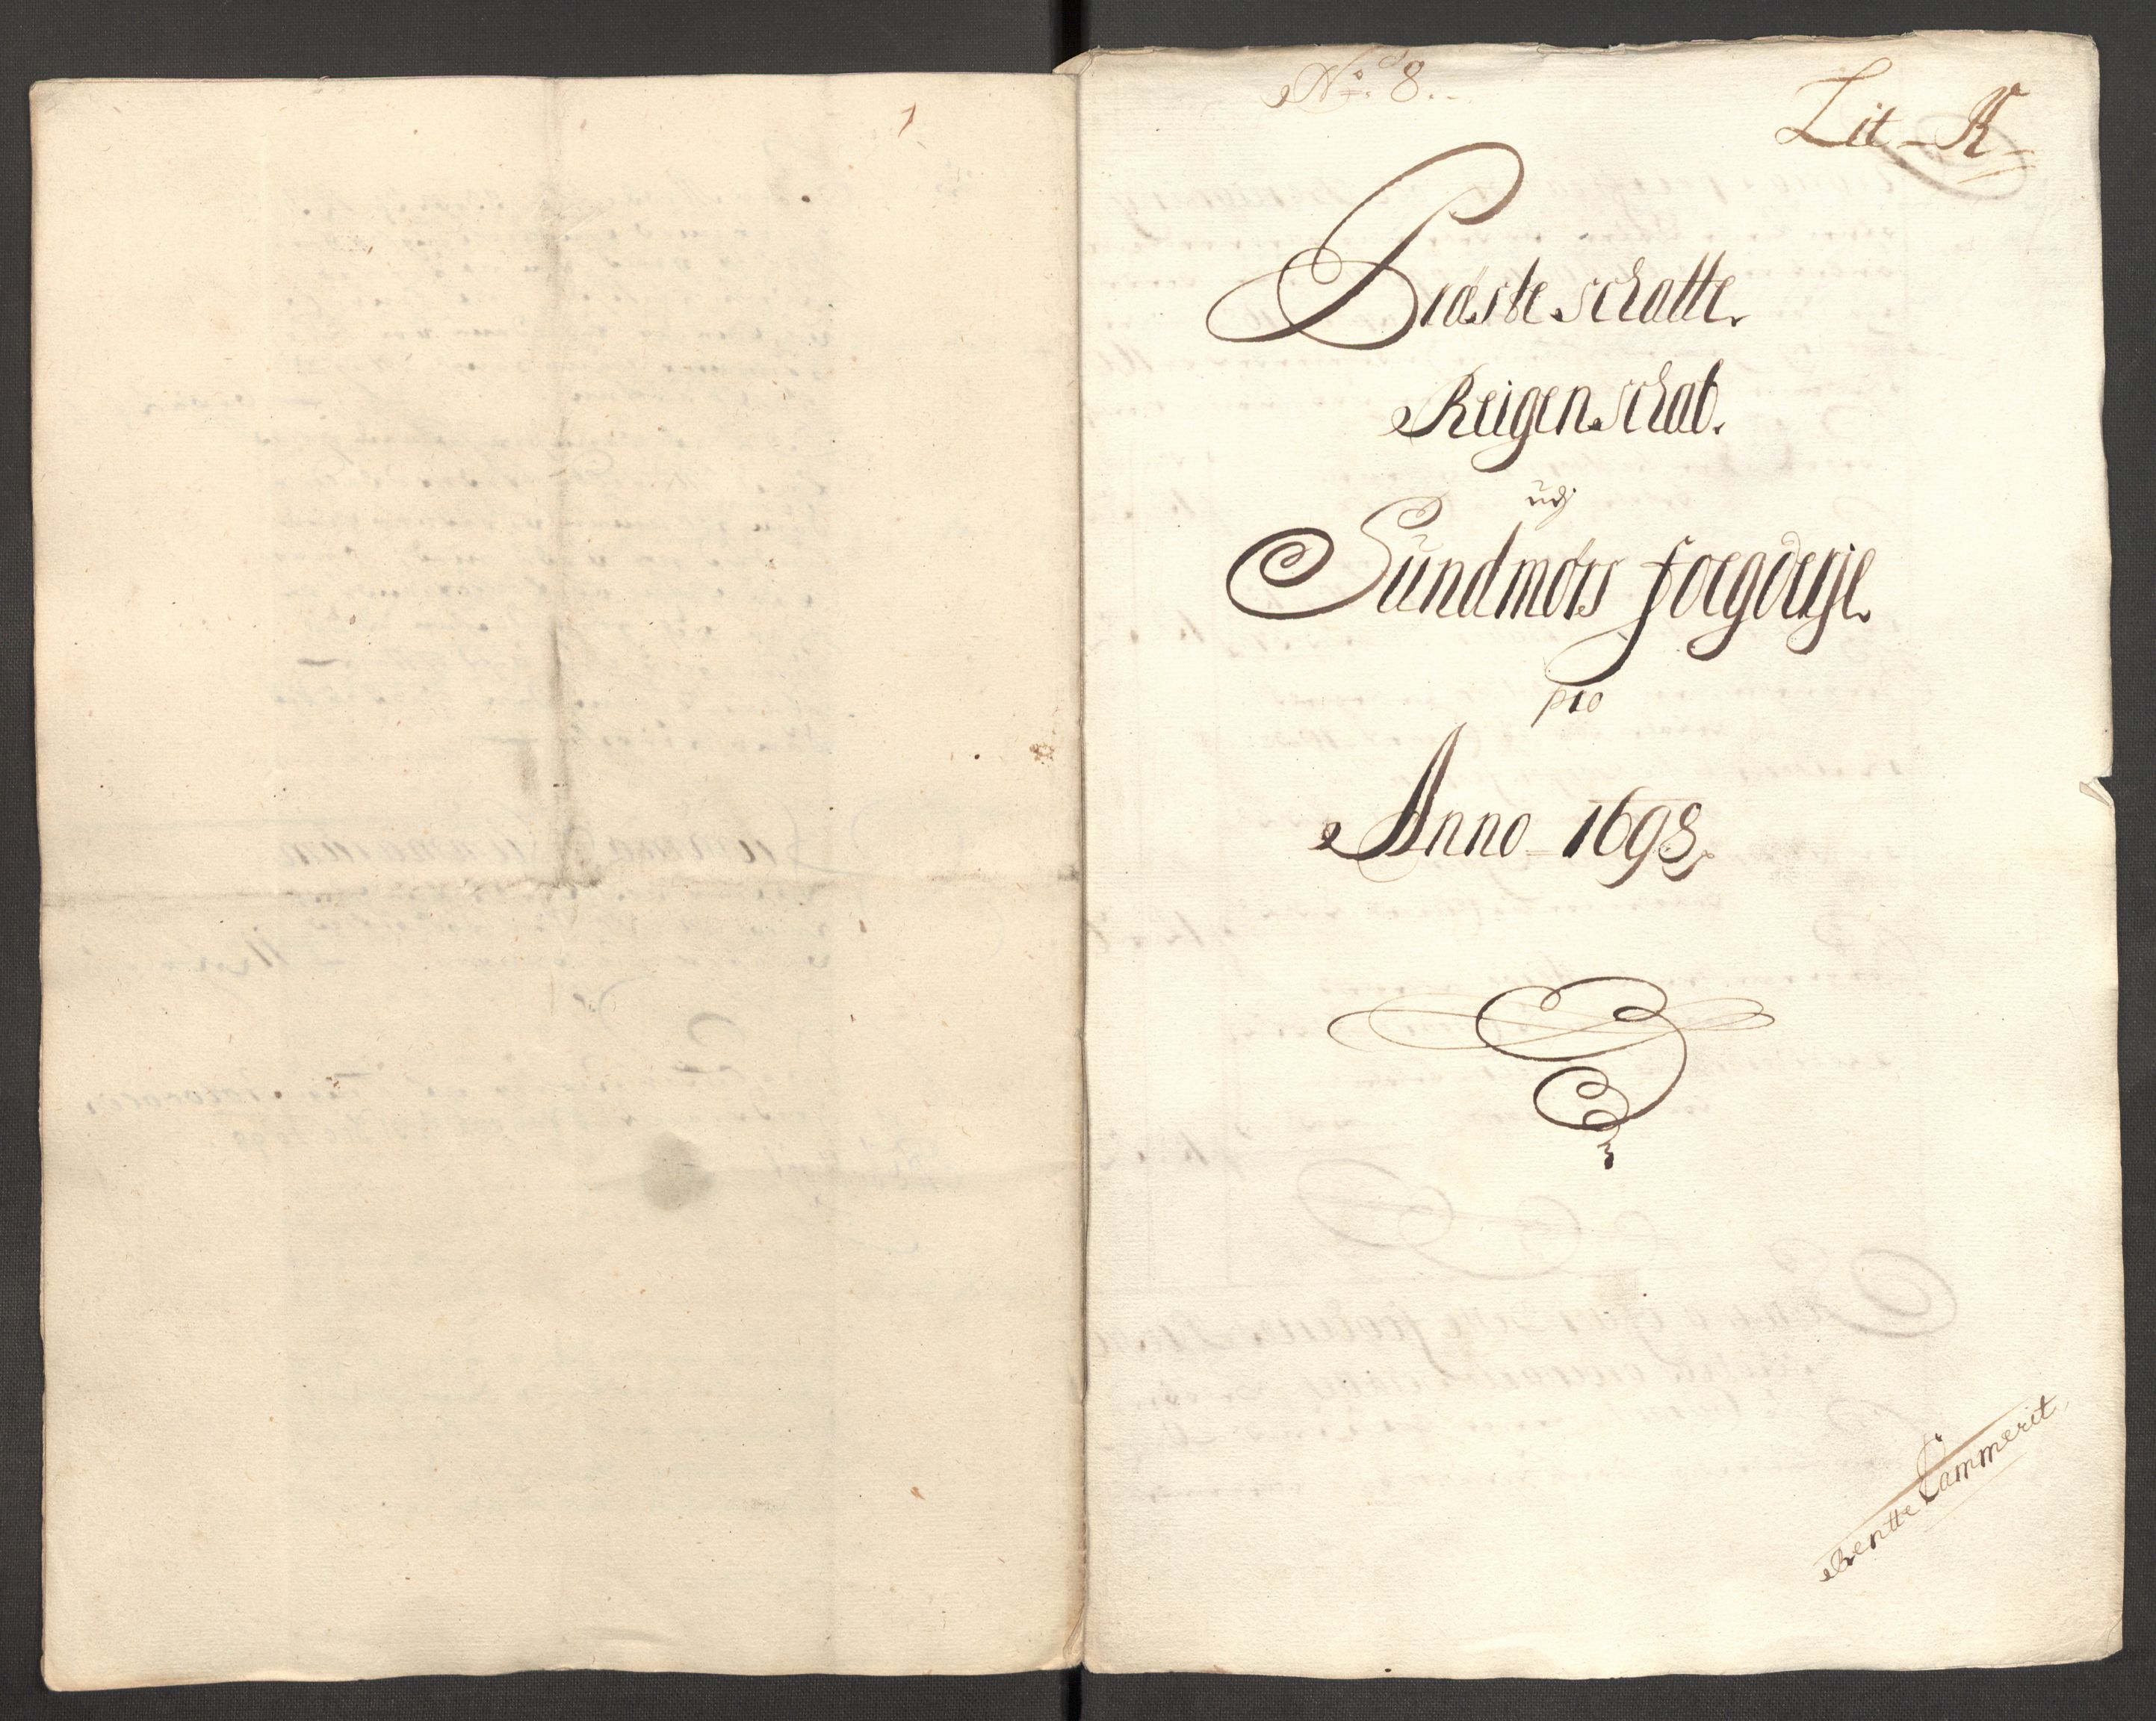 No. 8.
Lit. K
Præste schatte
Reigenschab.
udj
Sundmørs foegderje
pro
Anno 1698
Rentte Cammerit